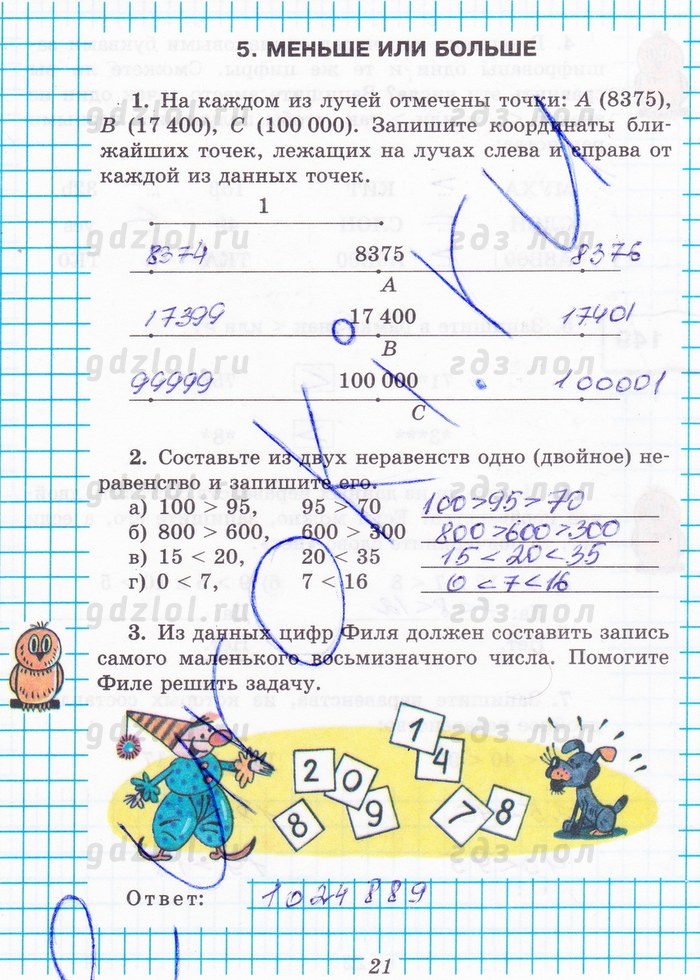 5. МЕНЬШЕ ИЛИ БОЛЬШЕ
1. На каждом из лучей отмечены точки: A (8375),
B (17 400), C (100 000). Запишите координаты бли-
жайших точек, лежащих на лучах слева и справа от
каждой из данных точек.
1
gdzlol.ru гдз лол
8374 8375 8376
A
17399 17 400 17401
B
gdzlol.ru гдз лол
99999 100 000 100001
C
2. Составьте из двух неравенств одно (двойное) не-
равенство и запишите его.
gdzlol.ru гдз лол
а) 100 > 95, 95 > 70 100>95>70
б) 800 > 600, 600 > 300 800>600>300
в) 15 < 20, 20 < 35 15<20<35
г) 0 < 7, 7 < 16 0<7<16
gdzlol.ru гдз лол
3. Из данных цифр Филя должен составить запись
самого маленького восьмизначного числа. Помогите
Филе решить задачу.
gdzlol.ru гдз лол
1 4
2 0
8 9 7 8
gdzlol.ru гдз лол
Ответ: 1024889
21